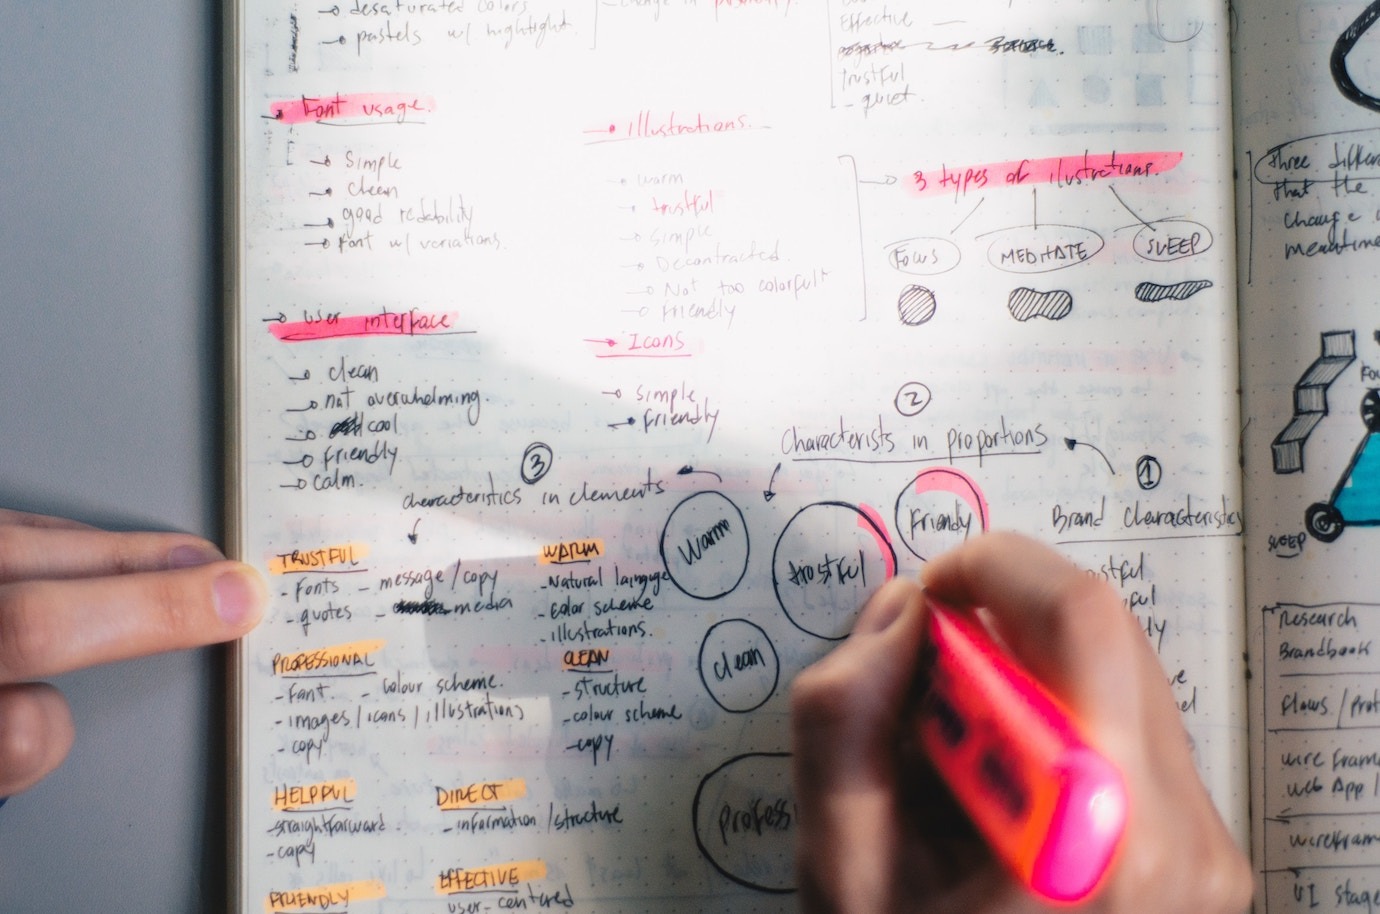 desaturated colors
pastels w/ hightlight.
Effective
trustful
- quiet.
Font usage.
Simple
clean
good redability
font w/ variations.
User interface
clean
not overwhelming.
cool
friendly
calm.
illustrations.
warm
trustful
simple
Decontracted
Not too colorful
friendly
Icons
simple
friendly
3 types of ilustrations.
Focus
MEDITATE
SLEEP
2
Characterists in proportions
1
Brand Characteristics
3
characteristics in elements
Warm
trostful
friendly
clean
profess
TRUSTFUL
- Fonts - message / copy
- quotes - media
PROFESSIONAL
- Font - colour scheme.
- images / icons / illustrations
- copy
HELPFUL
- straightforward
- copy
FRIENDLY
WARM
- Natural lainguge
- Color scheme
- illustrations.
CLEAN
- structure
- colour scheme
- copy
DIRECT
- information / structure
EFFECTIVE
user-centered
three differ
that the
change
meantime
SLEEP
Research
Brandbook
Flows / Prot
wire frame
web App /
wireframe
UI stage